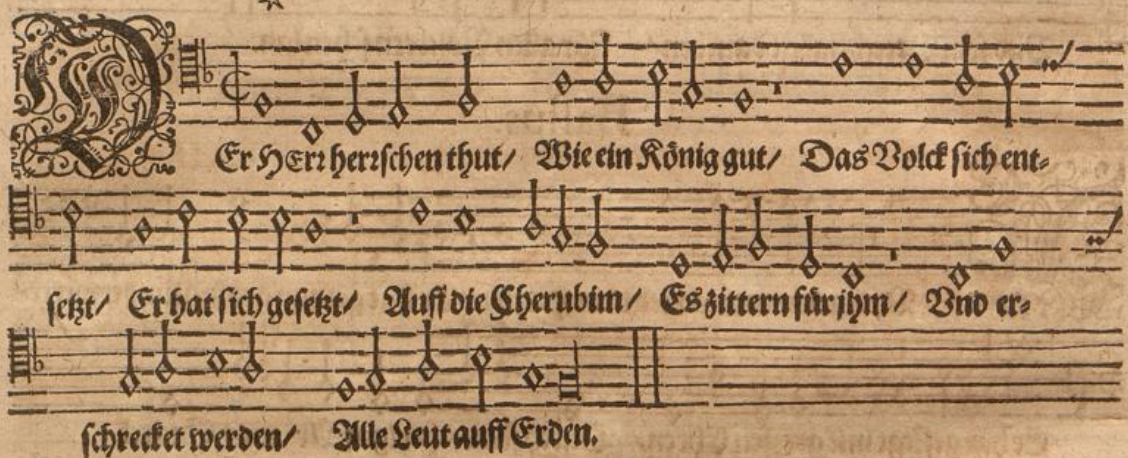 DEr HErr herrschen thut/ Wie ein König gut/ Das Volck sich ent-
setzt/ Er hat sich gesetzt/ Auff die Cherubim/ Es zittern für jhm/ Vnd er-
schrecket werden/ Alle Leut auff Erden.